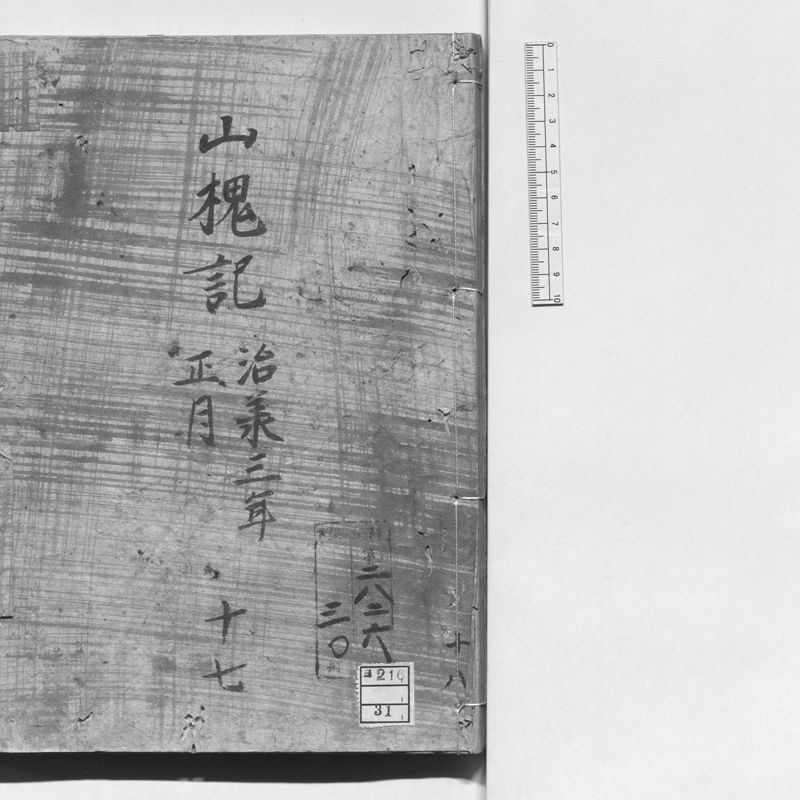 山槐記
治承三年
正月
十七
二六二六
三〇
十八
ヨ216
31
0 1 2 3 4 5 6 7 8 9 10